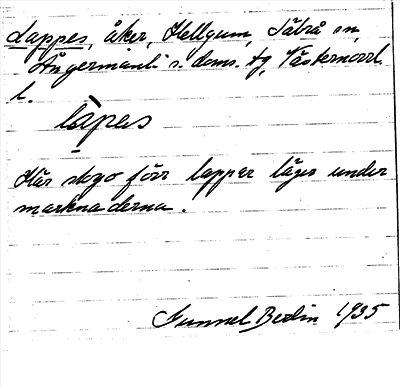 Lappes, åker, Hellgum, Säbrå sn,
Ångermanl. s. doms. tg, Västernorrl.
l.
làpas
Här stogo förr lappar läges under
marknaderna.
Gunnel Bedin 1935